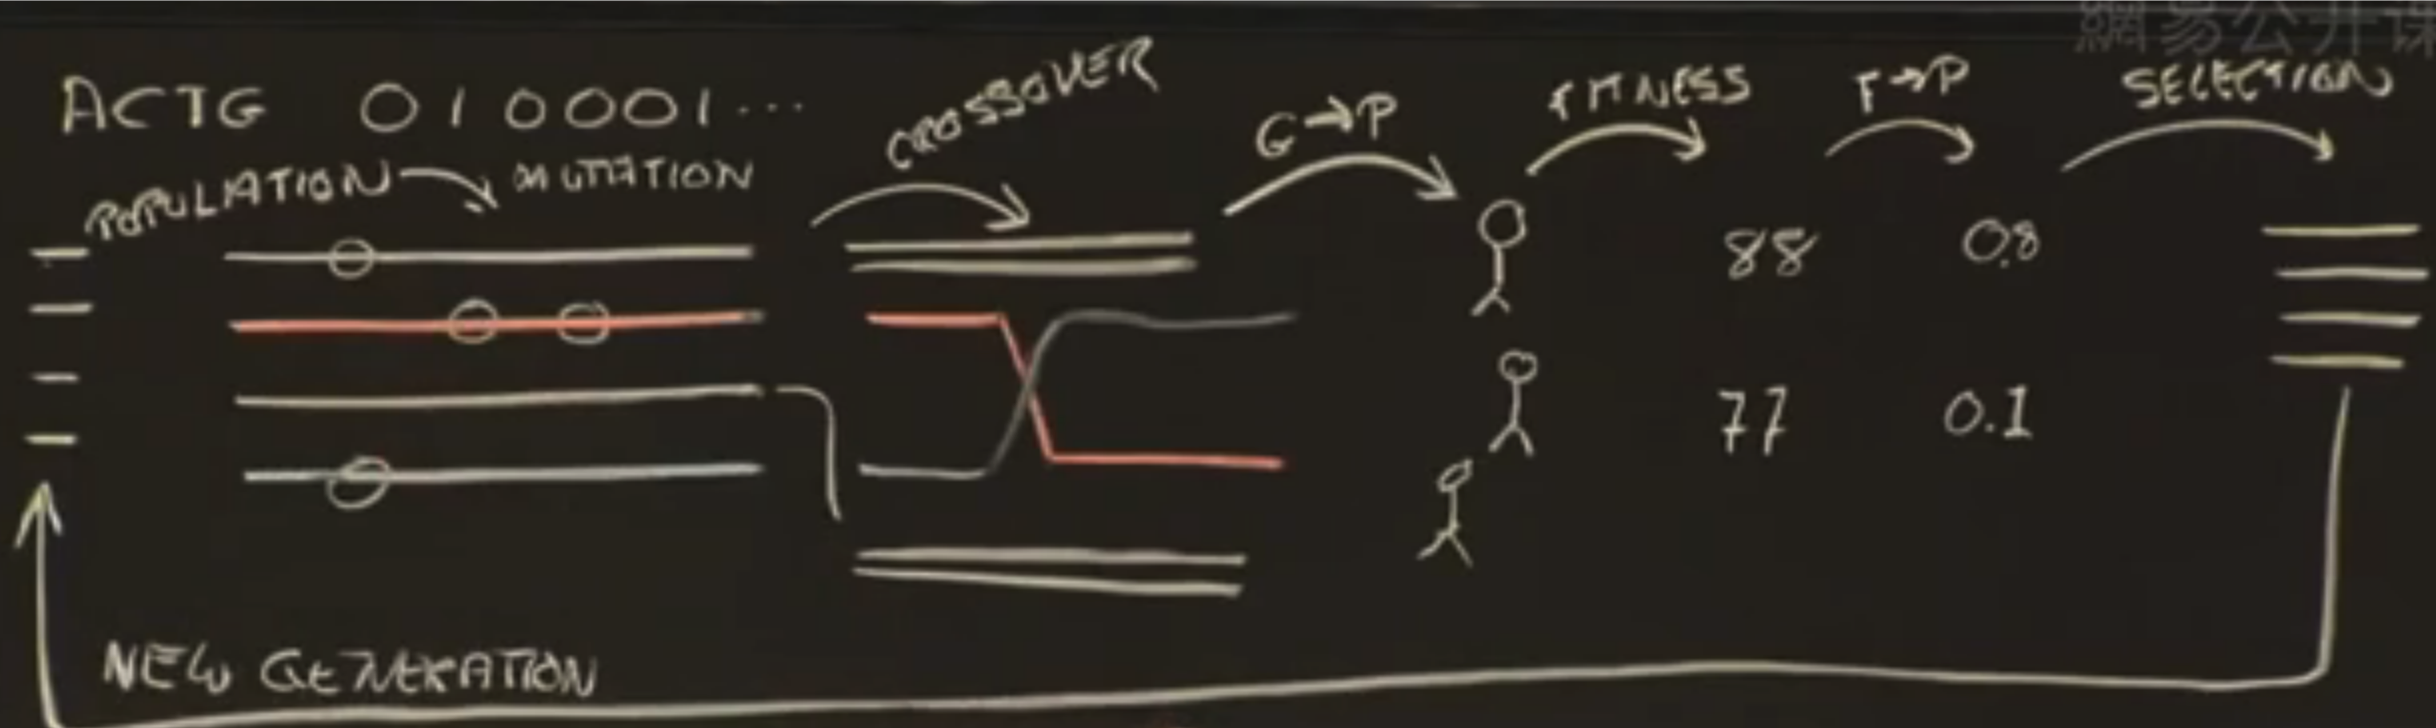 網易公开课
ACTG 010001...
POPULATION
MUTATION
CROSSOVER
G→P
FITNESS
F→P
SELECTION
88
0.8
77
0.1
NEW GENERATION